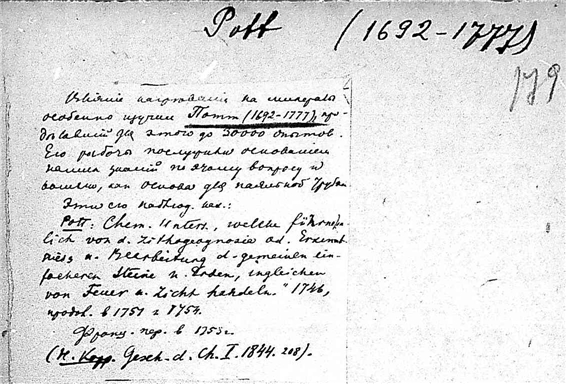 Pott (1692-1777)
179
Влияние нагревания на минералы
особенно изучил Потт (1692-1777), про
для этого до 30000 опытов.
Его работы послужили основанием
наших знаний по этому вопросу и
как основа для паяльной трубки.
Эти его наблюд. нах.:
Pott: Chem. Unters., welche fürnehm-
lich von d. Lithogeognosia od. Erkennt
niss u. Bearbeitung d. gemeinen ein-
facheren Steine u. Erden, ingleichen
von Feuer u. Licht handeln." 1746,
продол. в 1751 и 1754.
Франц. пер. в 1753 г.
(H. Kopp. Gesch. d. Ch. I. 1844. 208).